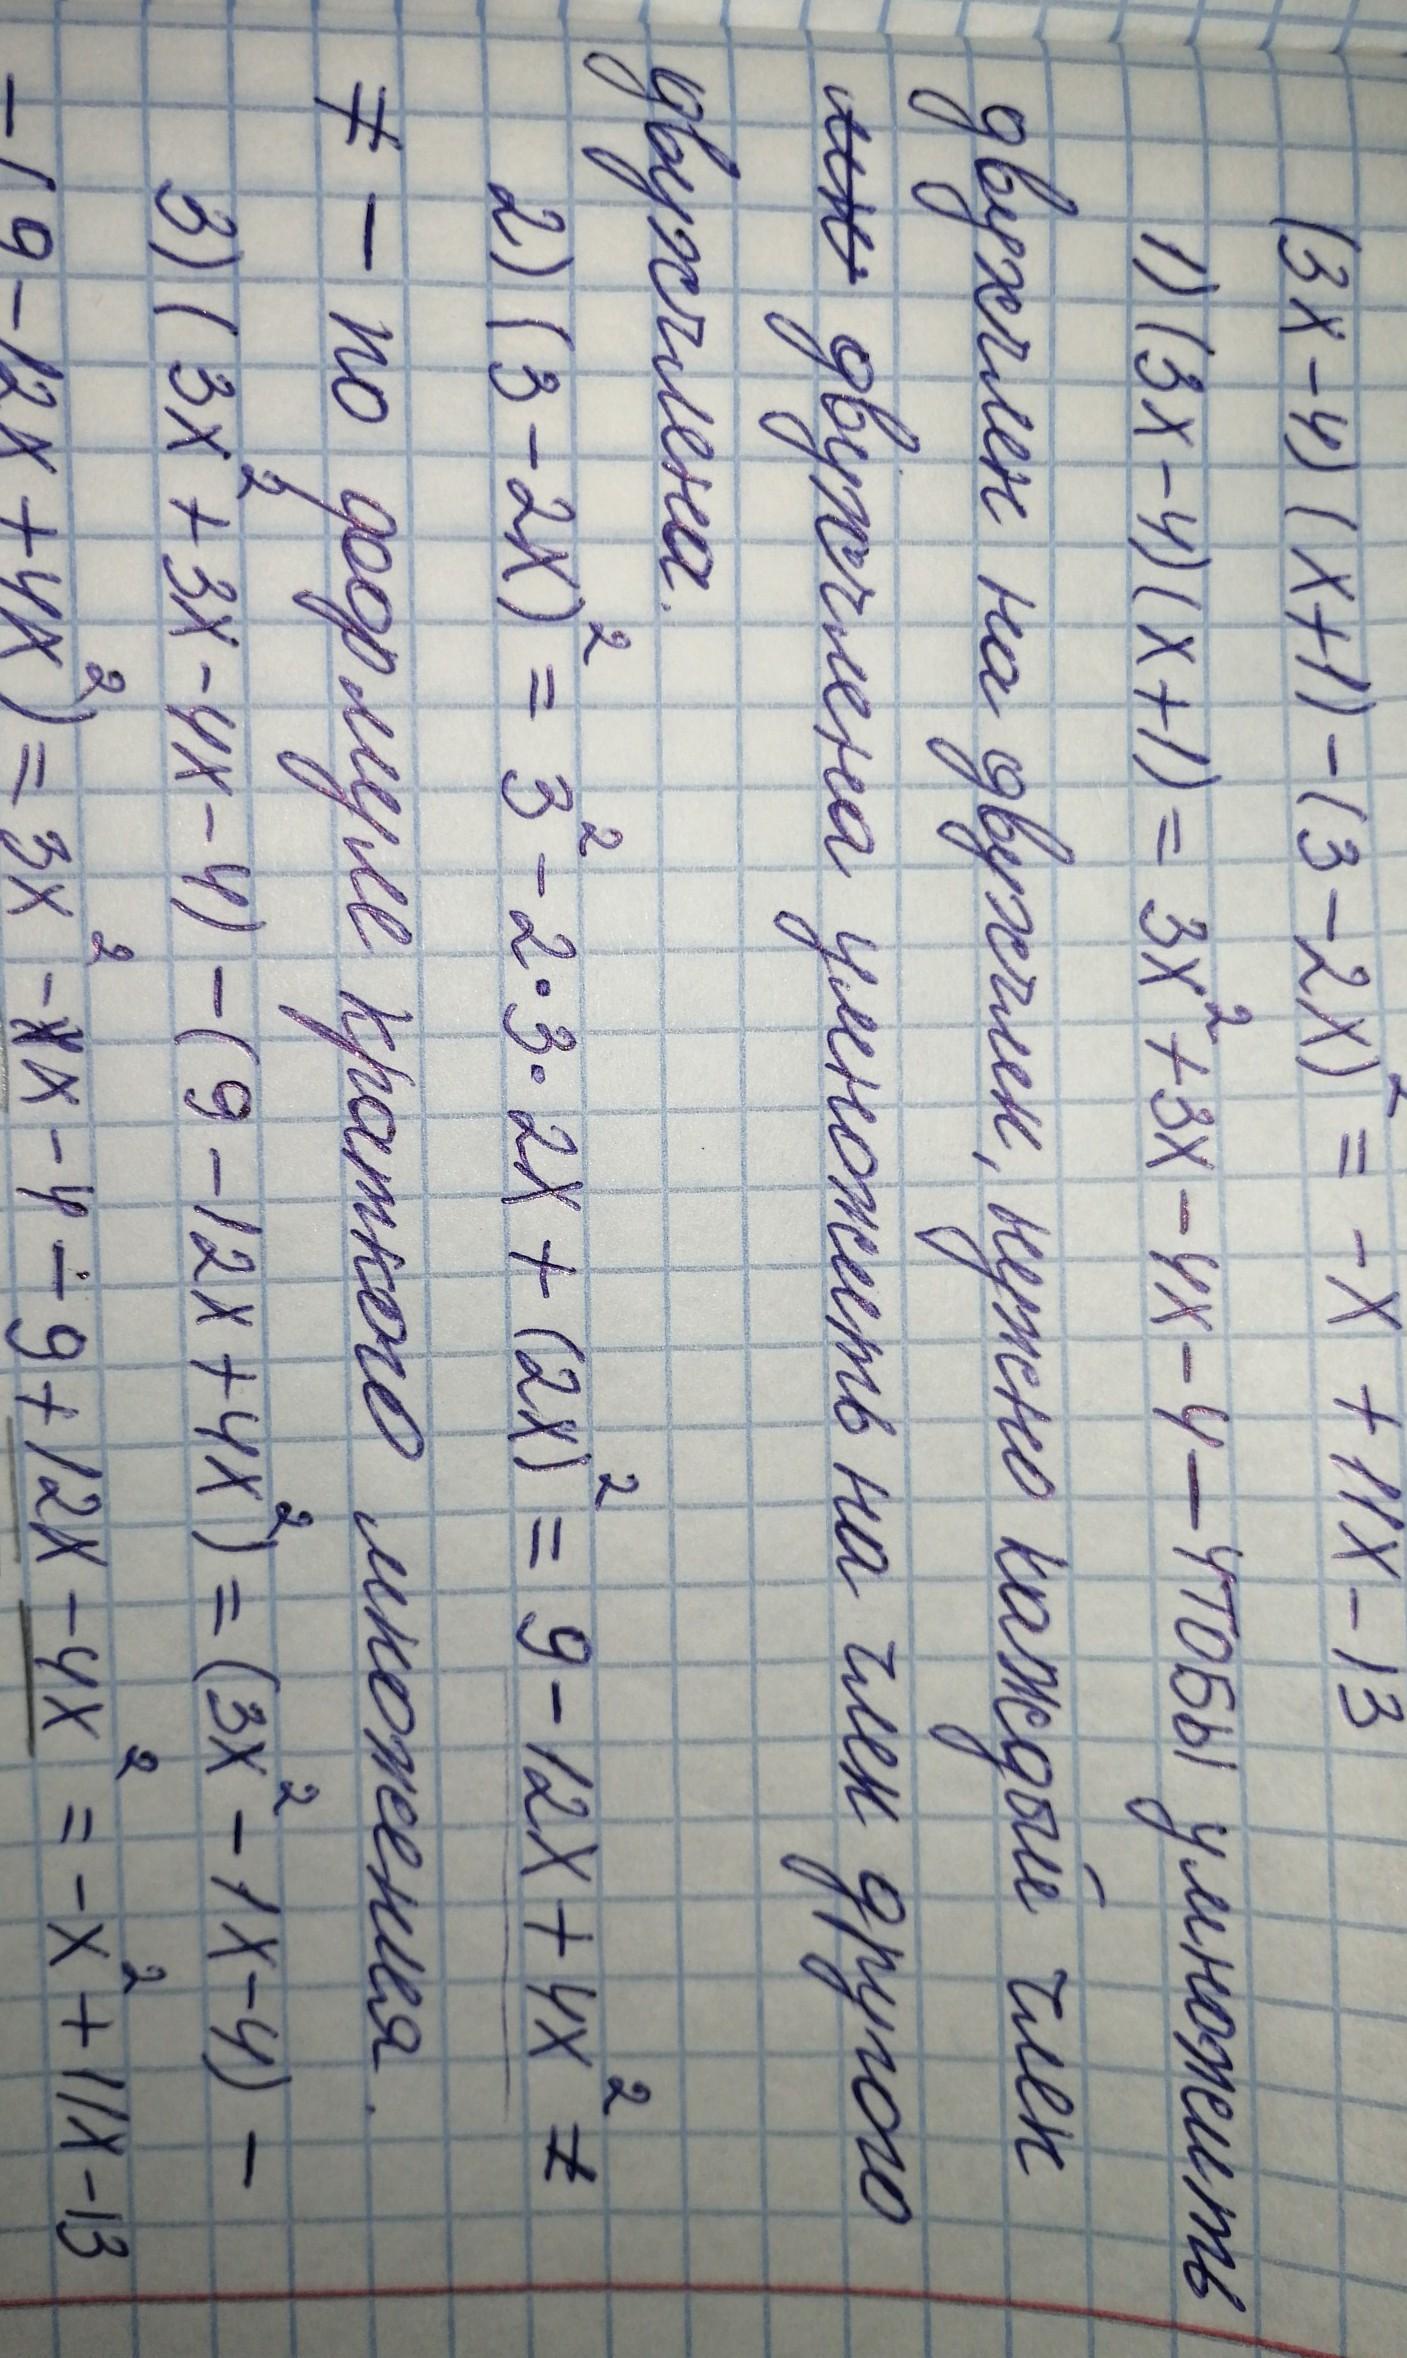 (3x-4)(x+1)-(3-2x)² = -x + 11x - 13
1) (3x-4)(x+1) = 3x² + 3x - 4x - 4 — чтобы умножить
двухчлен на двухчлен, нужно каждый член
двухчлена умножить на член другого
двухчлена.
2) (3-2x)² = 3² - 2·3·2x + (2x)² = 9 - 12x + 4x² ≠
≠ - по формуле краткого множения.
3) (3x² + 3x - 4x - 4) - (9 - 12x + 4x²) = (3x² - 1x - 4) -
- (9 - 12x + 4x²) = 3x² - x - 4 - 9 + 12x - 4x² = -x² + 11x - 13